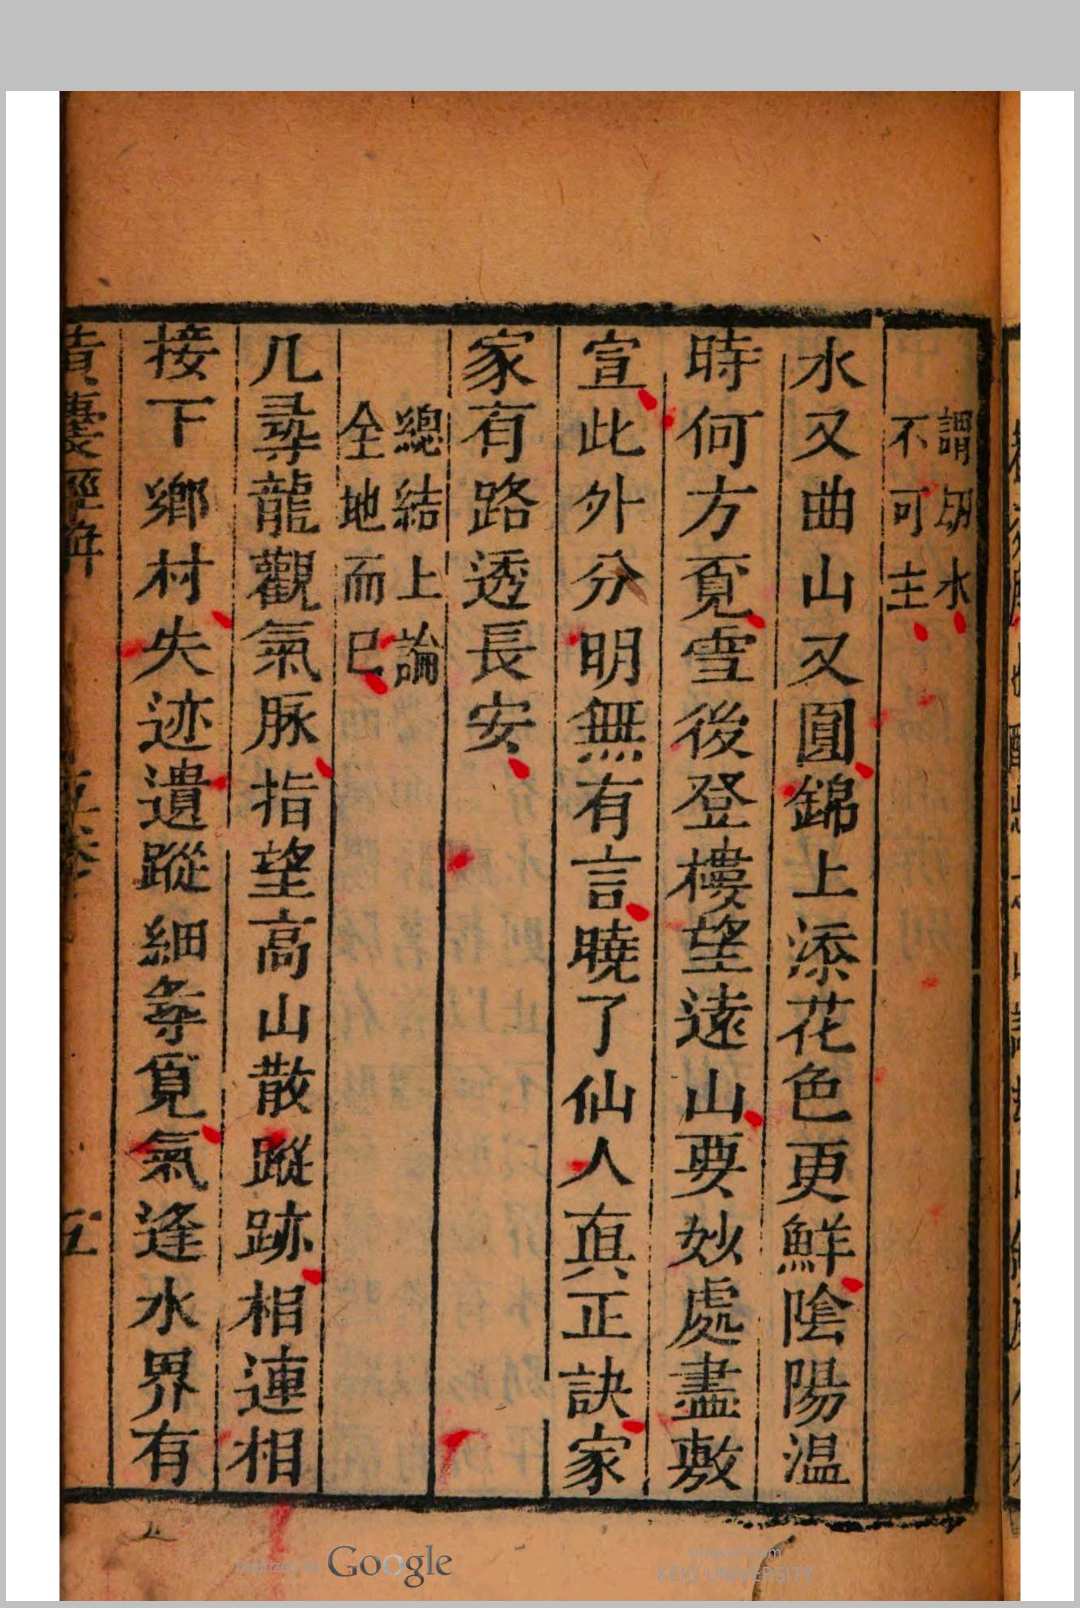 謂朋水
不可主
水又曲山又圓錦上添花色更鮮陰陽温
時何方覔雪後登樓望遠山要妙處盡敷
宣此外分明無有言曉了仙人真正訣家
家有路透長安
總結上論
全地而已
凢尋龍觀氣脉指望高山散蹤跡相連相
接下鄉村失迹遺蹤細尋覓氣逢水界有
五
Google